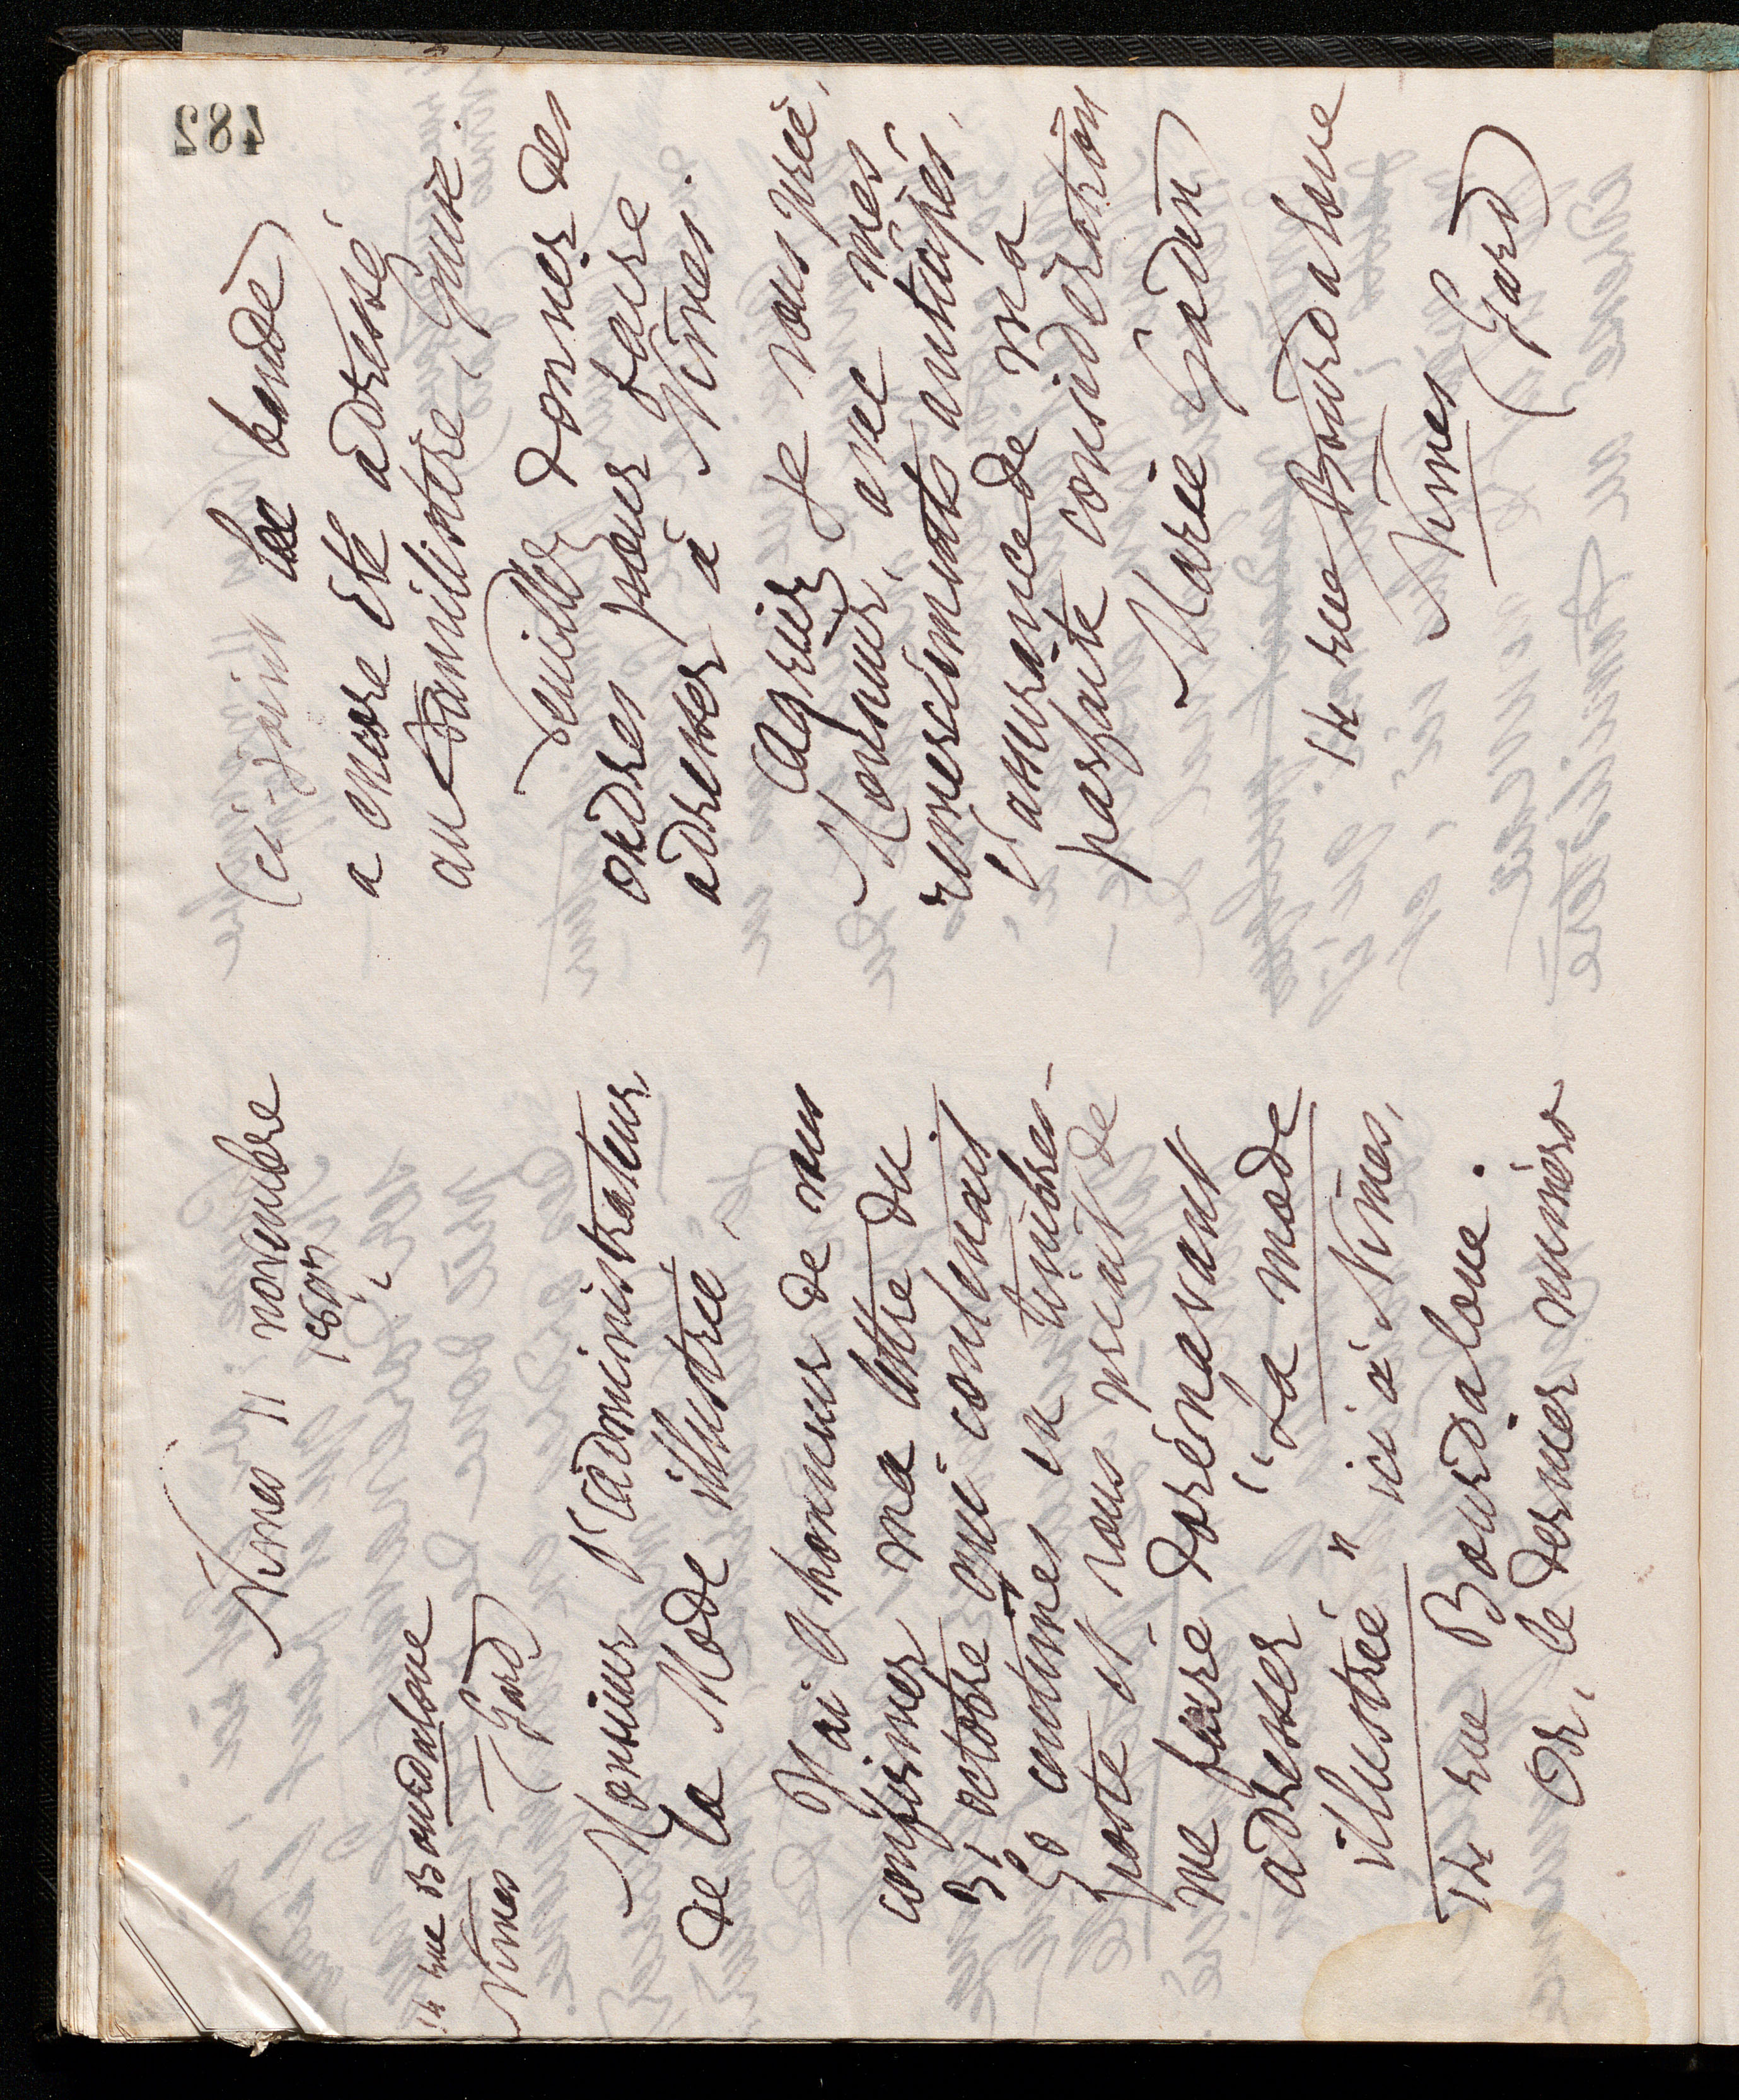 482
Nimes 11 novembre
1897
14 rue Bourdaloue
Nimes — (Gard)
Monsieur l'administrateur
de la Mode illustrée,
J'ai l'honneur de vous
confirmer ma lettre du
31 octobre qui contenait
50 centimes en timbres-
poste et vous priait de
me faire dorénavant
adresser "La mode
illustrée" ici à Nimes,
14 rue Bourdaloue.
Or, le dernier numéro
(ci-joint la bande)
a encore été adressé
au Familistère, Guise.
Veuillez donner des
ordres pour faire
adresser à Nimes.
Agréez je vous prie,
Monsieur, avec mes
remerciements anticipés,
l'assurance de ma
parfaite considération
Marie Godin
14 rue Bourdaloue
Nimes
(Gard)